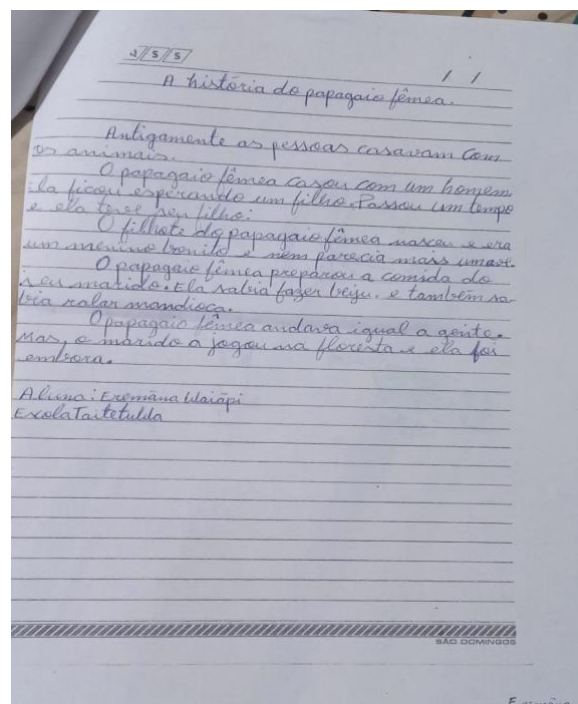 D S S / /
A história do papagaio fêmea.
Antigamente as pessoas casavam com
os animais.
O papagaio fêmea casou com um homem
ela ficou esperando um filho. Passou um tempo
e ela teve seu filho.
O filhote do papagaio fêmea nasceu e era
um menino bonito e nem parecia mais uma
O papagaio fêmea preparou a comida do
seu marido. Ela sabia fazer beiju. e também sa-
bia ralar mandioca.
O papagaio fêmea andava igual a gente.
Mas, o marido a jogou na floresta e ela foi
embora.
Aluna: Eremãna Waiãpi
Escola Taitetuwa
SÃO DOMINGOS